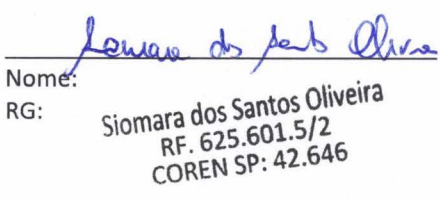 Siomara dos Santos Oliveira
Nome:
RG:
Siomara dos Santos Oliveira
RF. 625.601.5/2
COREN SP: 42.646